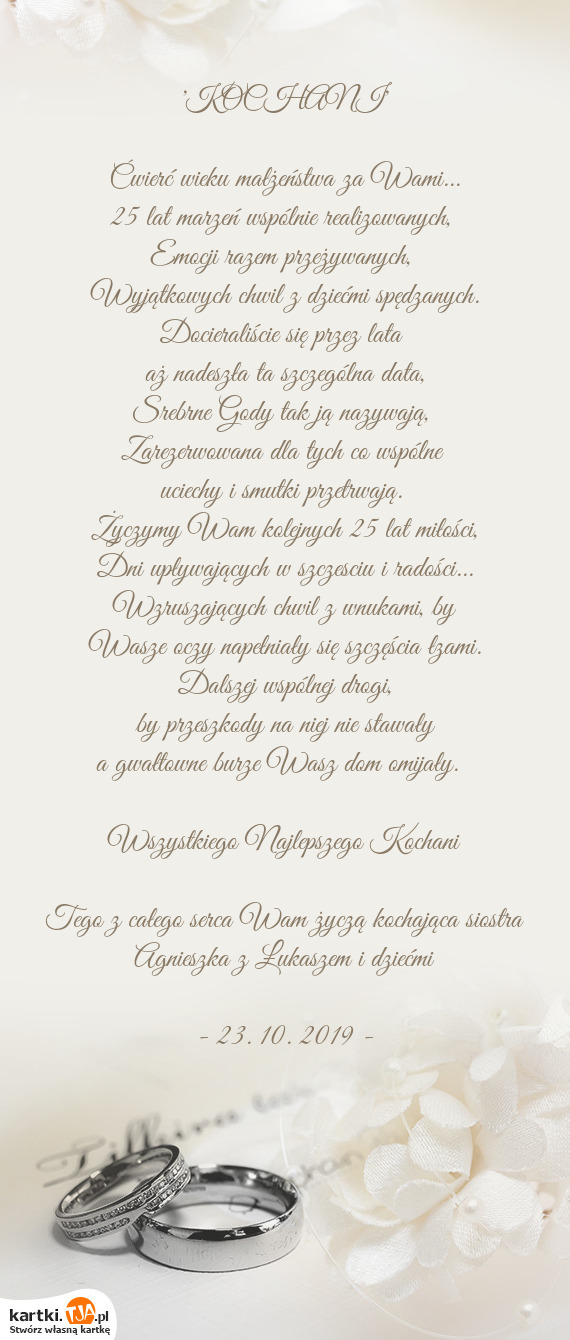 ’KOCHANI’
Ćwierć wieku małżeństwa za Wami...
25 lat marzeń wspólnie realizowanych,
Emocji razem przeżywanych,
Wyjątkowych chwil z dziećmi spędzanych.
Docieraliście się przez lata
aż nadeszła ta szczególna data,
Srebrne Gody tak ją nazywają,
Zarezerwowana dla tych co wspólne
uciechy i smutki przetrwają.
Życzymy Wam kolejnych 25 lat miłości,
Dni upływających w szczesciu i radości...
Wzruszających chwil z wnukami, by
Wasze oczy napełniały się szczęścia łzami.
Dalszej wspólnej drogi,
by przeszkody na niej nie stawały
a gwałtowne burze Wasz dom omijały.
Wszystkiego Najlepszego Kochani
Tego z całego serca Wam życzą kochająca siostra
Agnieszka z Łukaszem i dziećmi
- 23. 10. 2019 -
kartki.TJA.pl
Stwórz własną kartkę